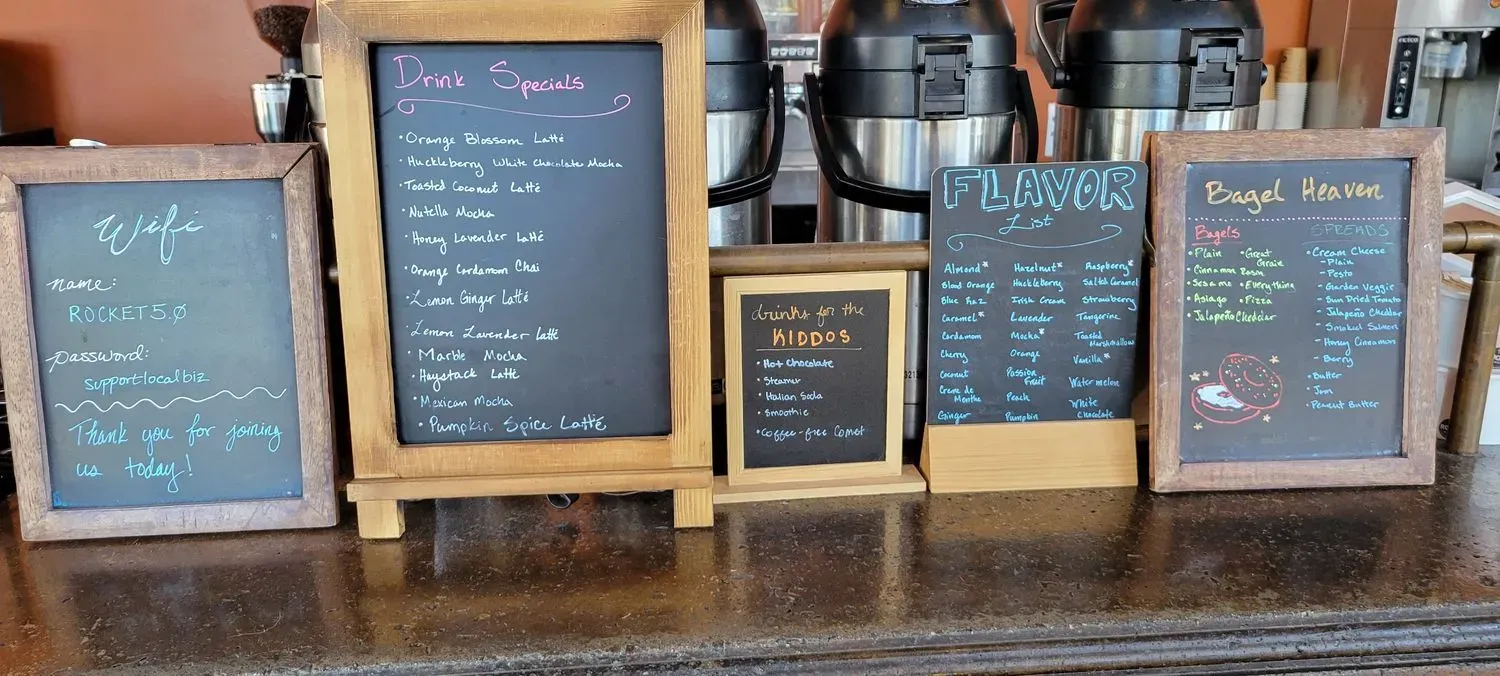 Wifi
name:
ROCKET5.0
password:
supportlocalbiz
Thank you for joining
us today!
Drink Specials
• Orange Blossom Latté
• Huckleberry White Chocolate Mocha
• Toasted Coconut Latté
• Nutella Mocha
• Honey Lavender Latté
• Orange Cardamom Chai
• Lemon Ginger Latté
• Lemon Lavender Latté
• Marble Mocha
• Haystack Latte
• Mexican Mocha
• Pumpkin Spice Latté
drinks for the
KIDDOS
• Hot Chocolate
• Steamer
• Italian Soda
• Smoothie
• Coffee-free Comet
FLAVOR
List
Almond*
Blood Orange
Blue Raz
Caramel*
Cardamom
Cherry
Coconut
Creme de
Menthe
Ginger
Hazelnut*
Huckleberry
Irish Cream
Lavender
Mocha*
Orange
Passion
Fruit
Peach
Pumpkin
Raspberry*
Salted Caramel
Strawberry
Tangerine
Toasted
Marshmallow
Vanilla*
Watermelon
White
Chocolate
Bagel Heaven
Bagels
• Plain
• Cinnamon Raisin
• Sesame
• Asiago
• Jalapeño Cheddar
• Great
Grain
• Everything
• Pizza
SPREADS
• Cream Cheese
- Plain
- Pesto
- Garden Veggie
- Sun Dried Tomato
- Jalapeño Cheddar
- Smoked Salmon
- Honey Cinnamon
- Berry
• Butter
• Jam
• Peanut Butter